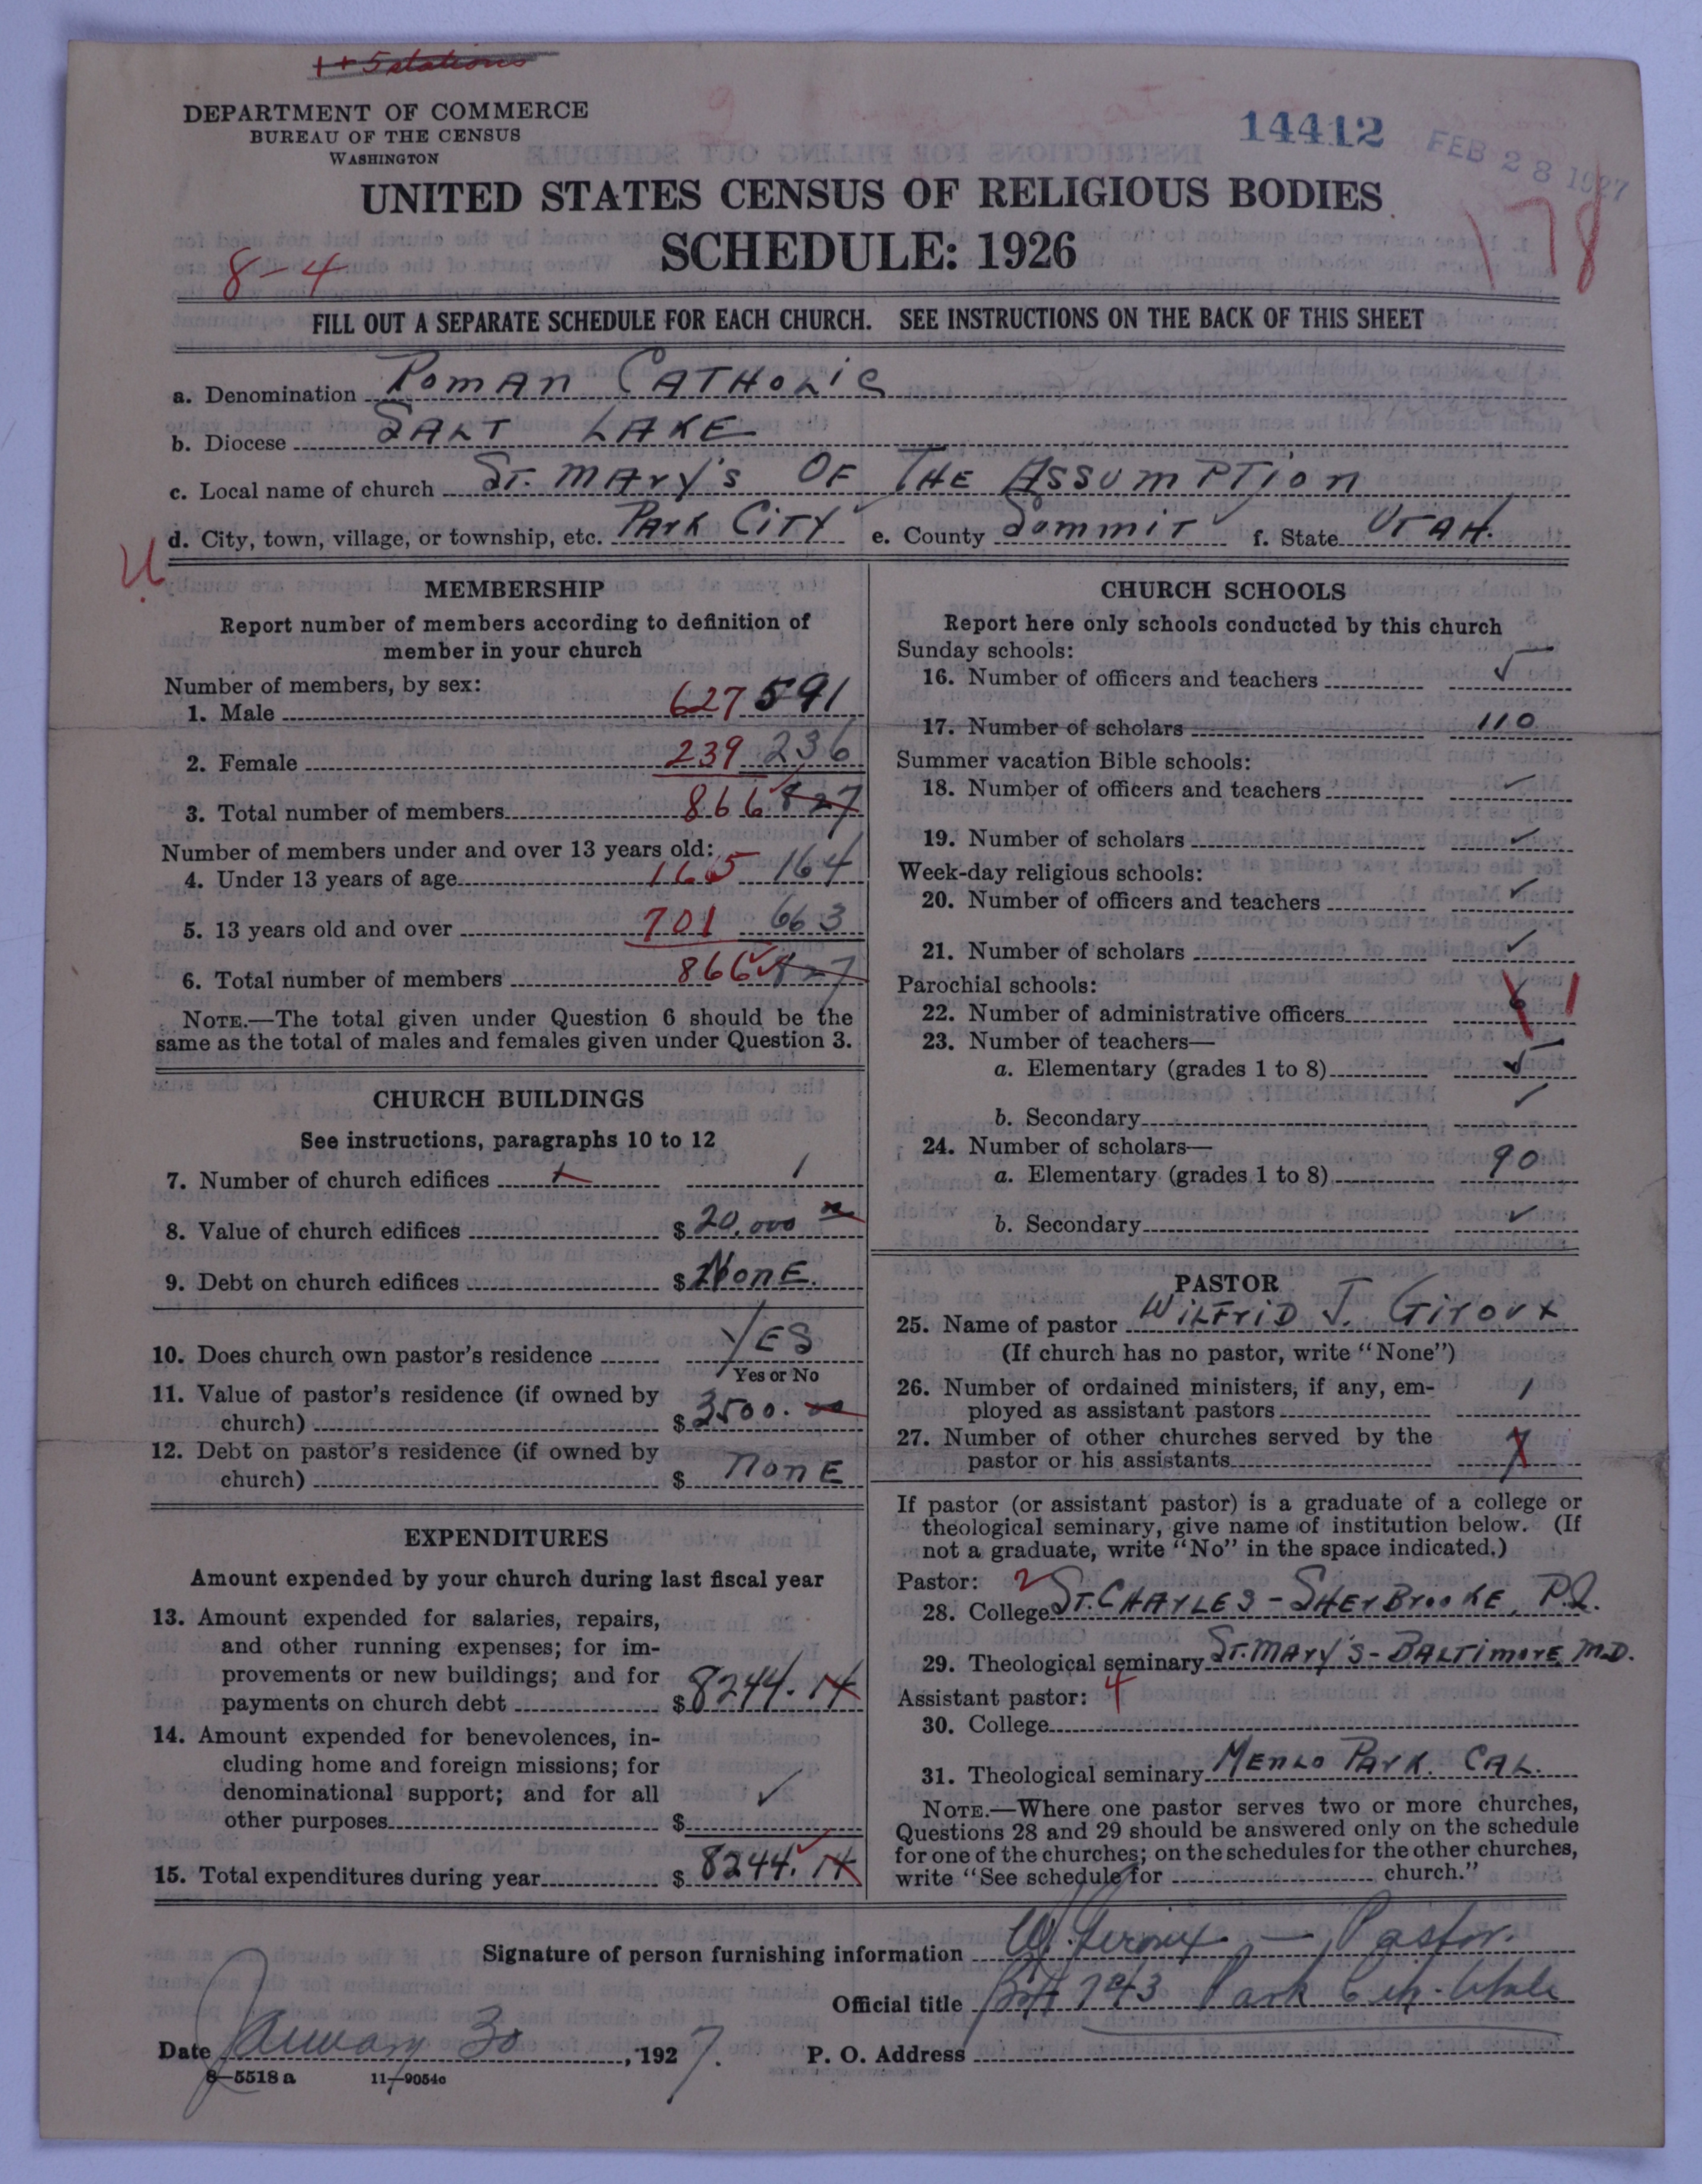 1+5 stations
DEPARTMENT OF COMMERCE
BUREAU OF THE CENSUS
WASHINGTON
14412
FEB 28 1927
UNITED STATES CENSUS OF RELIGIOUS BODIES
178
SCHEDULE: 1926
8-4
FILL OUT A SEPARATE SCHEDULE FOR EACH CHURCH. SEE INSTRUCTIONS ON THE BACK OF THIS SHEET
a. Denomination ROMAN CATHOLIC
b. Diocese SALT LAKE
c. Local name of church ST. MARY'S OF THE ASSUMPTION
d. City, town, village, or township, etc. PARK CITY e. County SUMMIT f. State UTAH.
U.
MEMBERSHIP
Report number of members according to definition of
member in your church
Number of members, by sex:
1. Male 627 591
2. Female 239 236
3. Total number of members 866 827
Number of members under and over 13 years old:
4. Under 13 years of age 165 164
5. 13 years old and over 701 663
6. Total number of members 866 827
NOTE.—The total given under Question 6 should be the
same as the total of males and females given under Question 3.
CHURCH BUILDINGS
See instructions, paragraphs 10 to 12
7. Number of church edifices 1
8. Value of church edifices $ 20,000
9. Debt on church edifices $ NONE.
10. Does church own pastor's residence YES
Yes or No
11. Value of pastor's residence (if owned by
church) $ 3500.00
12. Debt on pastor's residence (if owned by
church) $ NONE
EXPENDITURES
Amount expended by your church during last fiscal year
13. Amount expended for salaries, repairs,
and other running expenses; for im-
provements or new buildings; and for
payments on church debt $ 8244.14
14. Amount expended for benevolences, in-
cluding home and foreign missions; for
denominational support; and for all
other purposes $ ✓
15. Total expenditures during year $ 8244.14
CHURCH SCHOOLS
Report here only schools conducted by this church
Sunday schools:
16. Number of officers and teachers 5
17. Number of scholars 110
Summer vacation Bible schools:
18. Number of officers and teachers ✓
19. Number of scholars ✓
Week-day religious schools:
20. Number of officers and teachers ✓
21. Number of scholars ✓
Parochial schools:
22. Number of administrative officers 6 1
23. Number of teachers—
a. Elementary (grades 1 to 8) 5
b. Secondary ✓
24. Number of scholars—
a. Elementary (grades 1 to 8) 90
b. Secondary ✓
PASTOR
25. Name of pastor WILFRID J. GIROUX
(If church has no pastor, write "None")
26. Number of ordained ministers, if any, em-
ployed as assistant pastors 1
27. Number of other churches served by the
pastor or his assistants
If pastor (or assistant pastor) is a graduate of a college or
theological seminary, give name of institution below. (If
not a graduate, write "No" in the space indicated.)
Pastor: 2
28. College ST. CHARLES - SHERBROOKE, P.Q.
29. Theological seminary ST. MARY'S - BALTIMORE, M.D.
Assistant pastor: 4
30. College
31. Theological seminary MENLO PARK. CAL.
NOTE.—Where one pastor serves two or more churches,
Questions 28 and 29 should be answered only on the schedule
for one of the churches; on the schedules for the other churches,
write "See schedule for church."
Signature of person furnishing information W. Giroux - Pastor.
Official title Box 743 Park City. Utah
Date January 30, 1927. P. O. Address
8—5518 a 11—9054c